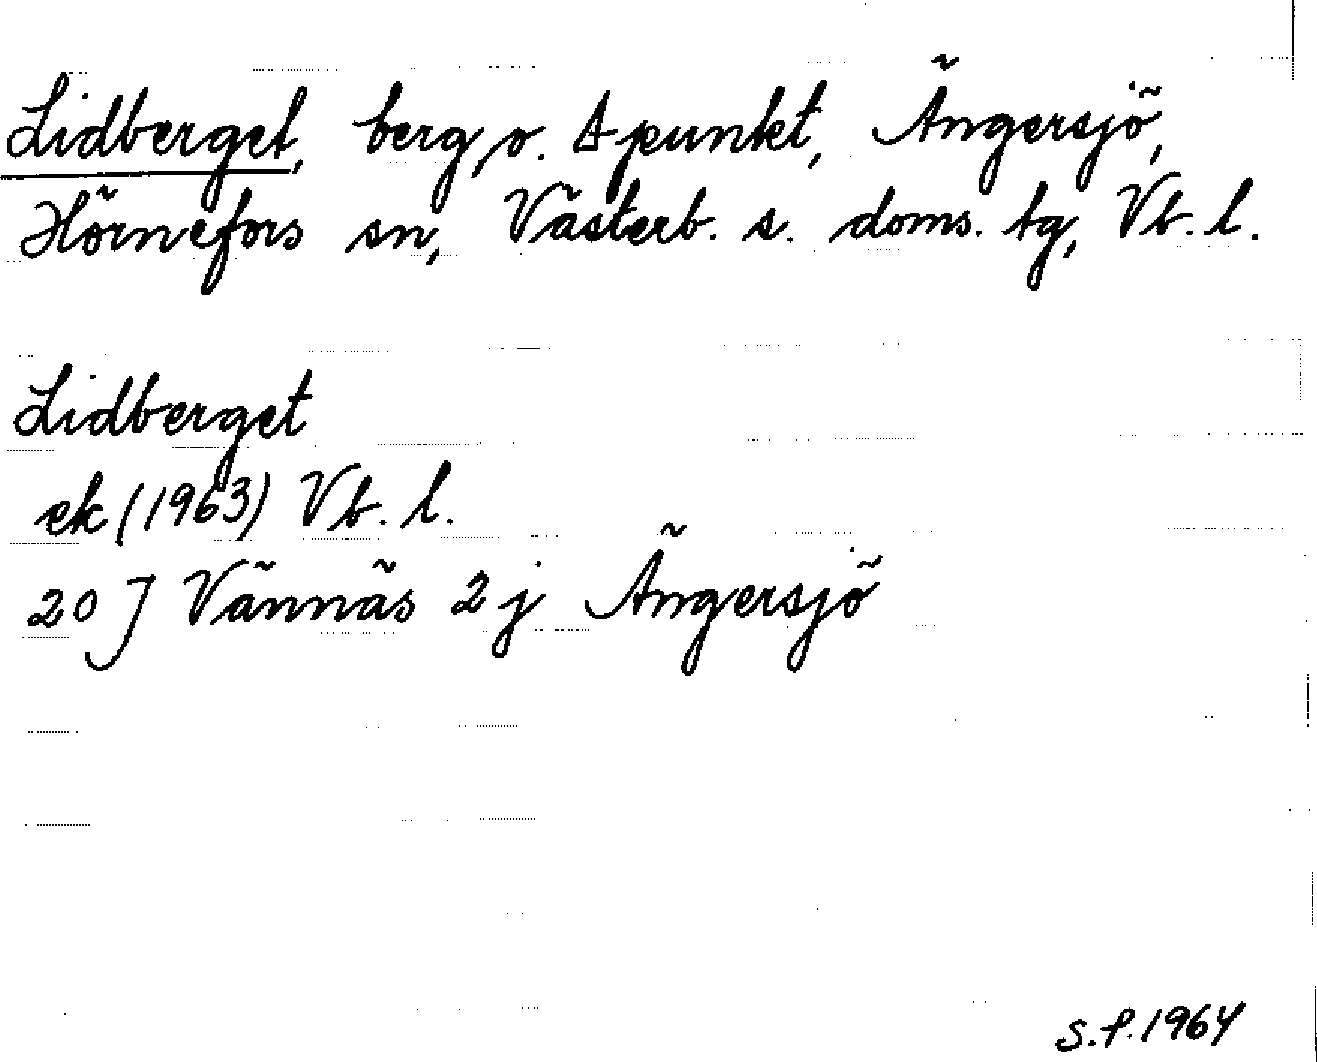 Lidberget, berg o. Δpunkt, Ängersjö,
Hörnefors sn, Västerb. s. doms. tg, Vb. l.
Lidberget
ek (1963) Vb. l.
20 J Vännäs 2 j Ängersjö
S.P. 1964